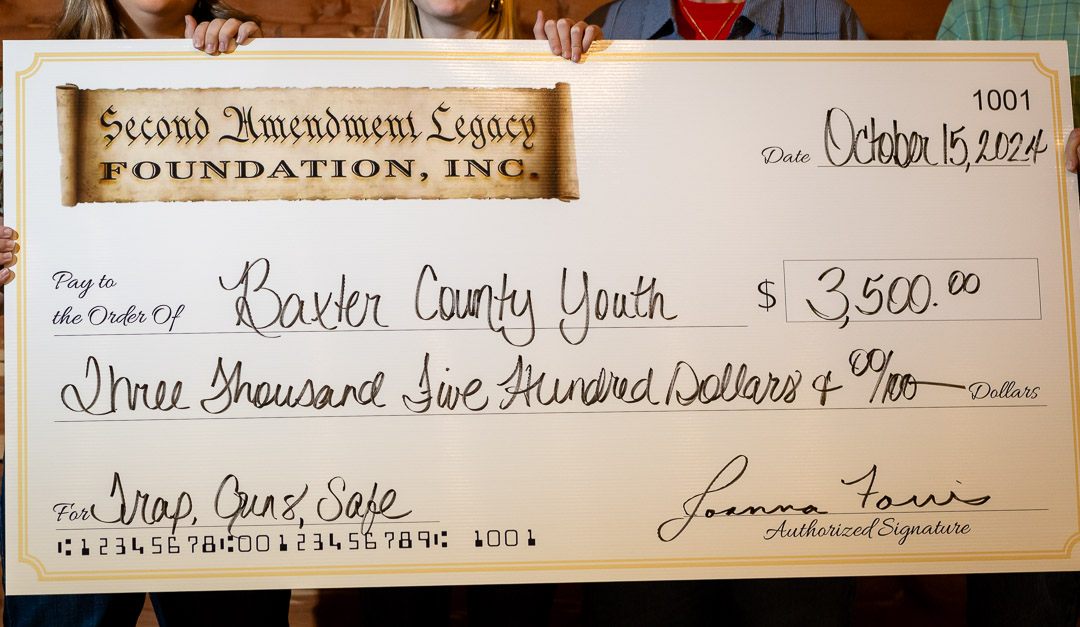 Second Amendment Legacy
FOUNDATION, INC.
1001
Date October 15, 2024
Pay to
the Order Of Baxter County Youth $ 3,500.00
Three Thousand Five Hundred Dollars & 00/100 Dollars
For Trap, Guns, Safe
Joanna Farris
Authorized Signature
⑆123456781⑆00123456789⑆ 1001